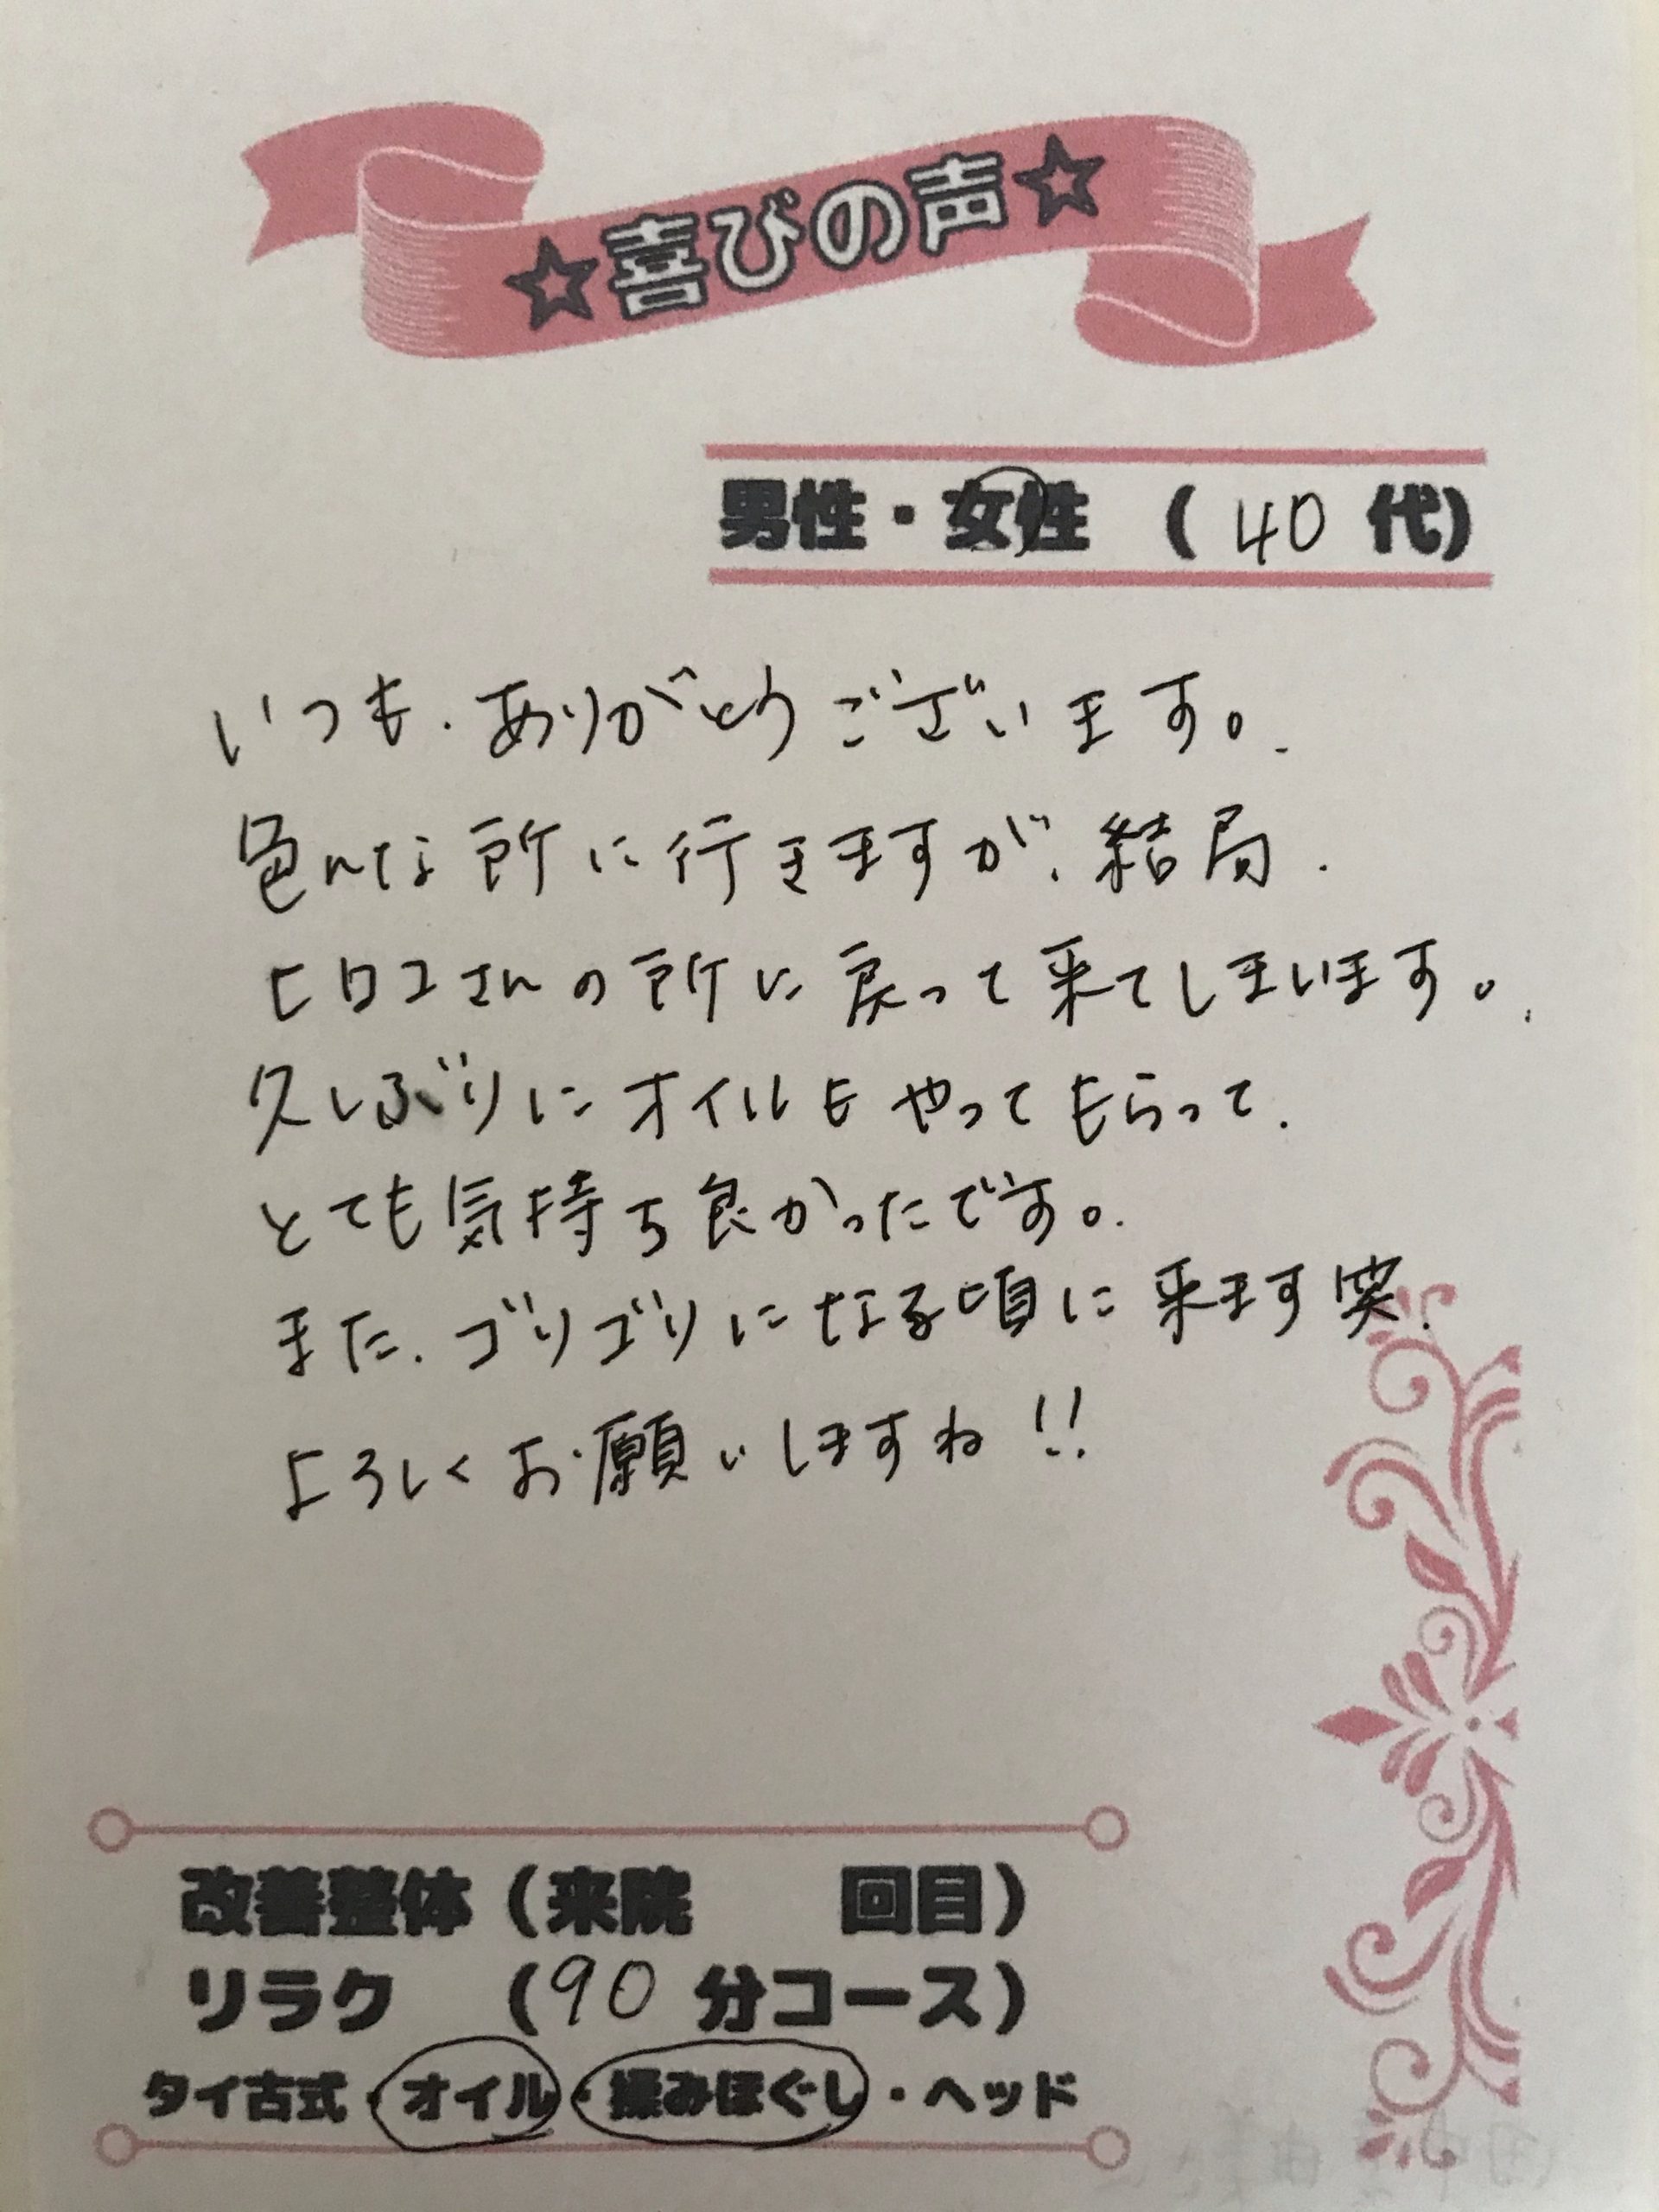 ☆喜びの声☆
男性・女性 (40代)
いつも、ありがとうございます。
色んな所に行きますが、結局、
ヒロコさんの所に戻って来てしまいます。
久しぶりにオイルもやってもらって、
とても気持ち良かったです。
また、ゴリゴリになる頃に来ます笑。
よろしくお願いしますね!!
改善整体(来院 回目)
リラク (90分コース)
タイ古式・オイル・揉みほぐし・ヘッド